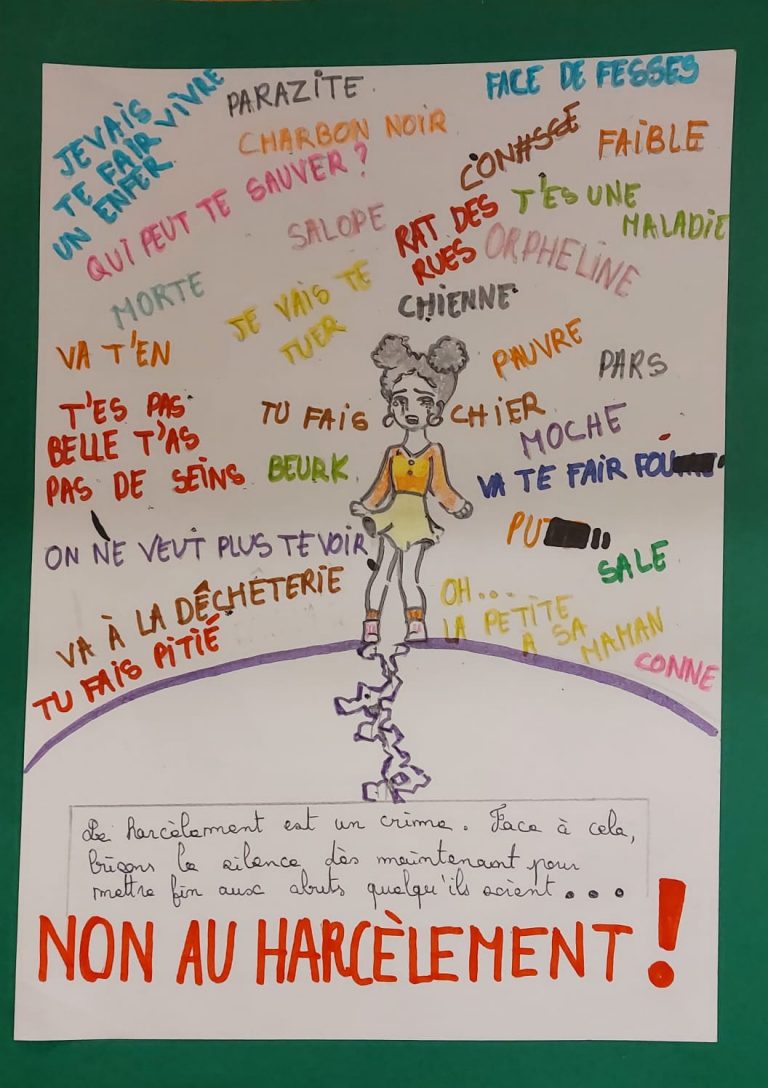 JEVAIS
TE FAIR VIVRE
UN ENFER
PARAZITE
FACE DE FESSES
CHARBON NOIR
CON#SSE
FAIBLE
QUI PEUT TE SAUVER ?
SALOPE
RAT DES
RUES
T'ES UNE
MALADIE
ORPHELINE
MORTE
JE VAIS TE
TUER
CHIENNE
VA T'EN
PAUVRE
PARS
T'ES PAS
BELLE T'AS
PAS DE SEINS
TU FAIS CHIER
MOCHE
BEURK
VA TE FAIR FOU
PU
ON NE VEUT PLUS TE VOIR
SALE
VA À LA DÊCHETERIE
OH...
LA PETITE
A SA
MAMAN
TU FAIS PITIÉ
CONNE
Le harcèlement est un crime. Face à cela,
brisons le silence dès maintenant pour
mettre fin aux abuts quelqu'ils soient...
NON AU HARCÈLEMENT !